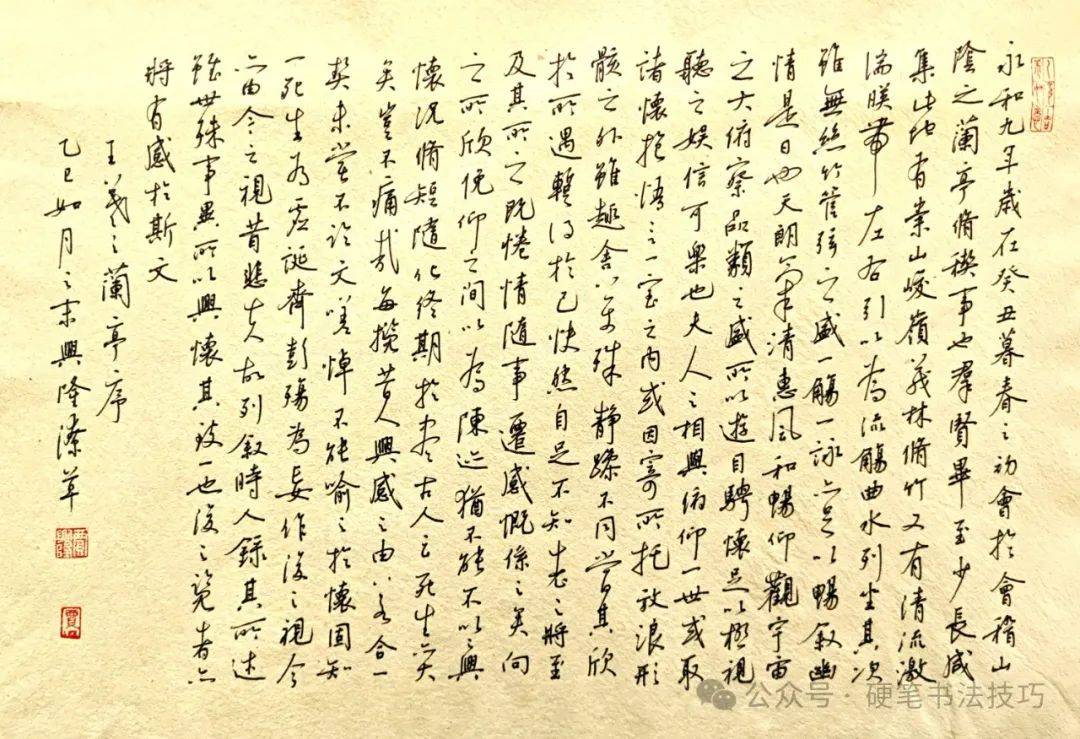 永和九年歲在癸丑暮春之初會於會稽山
陰之蘭亭脩稧事也羣賢畢至少長咸
集此地有崇山峻嶺茂林脩竹又有清流激
湍暎帶左右引以為流觴曲水列坐其次
雖無絲竹管弦之盛一觴一詠亦足以暢敘幽
情是日也天朗氣清惠風和暢仰觀宇宙
之大俯察品類之盛所以遊目騁懷足以極視
聽之娛信可樂也夫人之相與俯仰一世或取
諸懷抱悟言一室之內或因寄所托放浪形
骸之外雖趣舍萬殊靜躁不同當其欣
於所遇暫得於己快然自足不知老之將至
及其所之既惓情隨事遷感慨係之矣向
之所欣俛仰之間以為陳迹猶不能不以之興
懷況脩短隨化終期於盡古人云死生亦大
矣豈不痛哉每攬昔人興感之由若合一
契未嘗不臨文嗟悼不能喻之於懷固知
一死生為虛誕齊彭殤為妄作後之視今
亦由今之視昔悲夫故列敘時人錄其所述
雖世殊事異所以興懷其致一也後之覽者亦
將有感於斯文
王羲之蘭亭序
乙巳如月之末興隆潦草
公众号·硬笔书法技巧